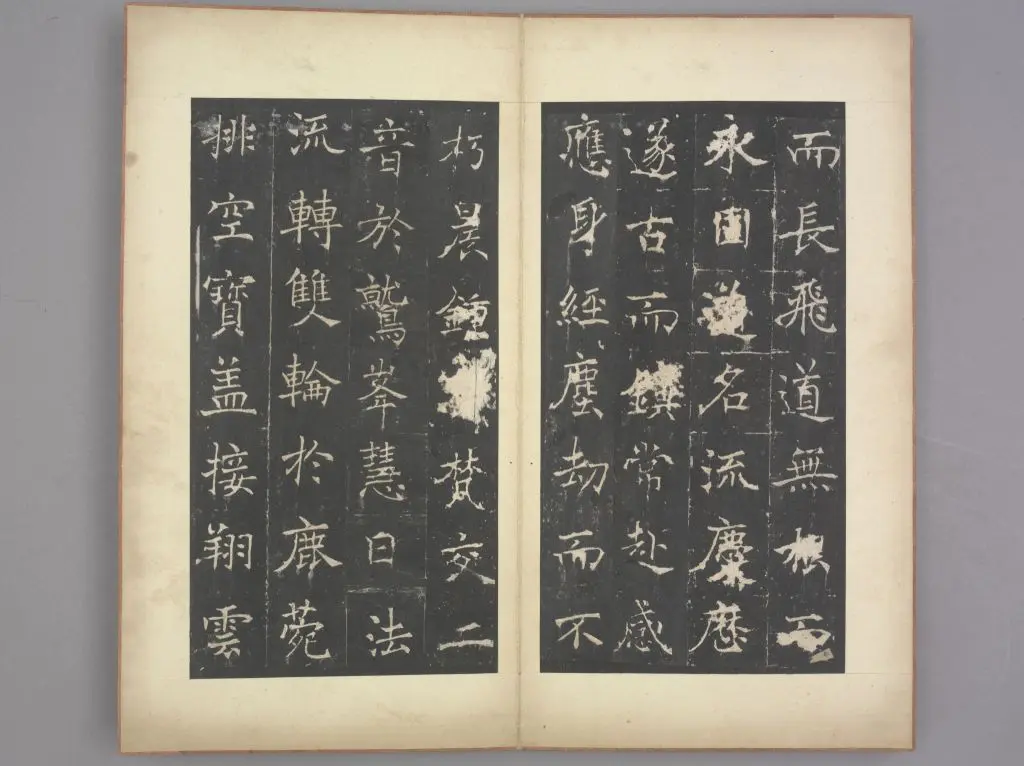 而長飛道無根而
永固道名流慶歷
遂古而鎮常赴感
應身經塵劫而不
朽晨鍾梵交二
音於鷲峯慧日法
流轉雙輪於鹿菀
排空寶盖接翔雲